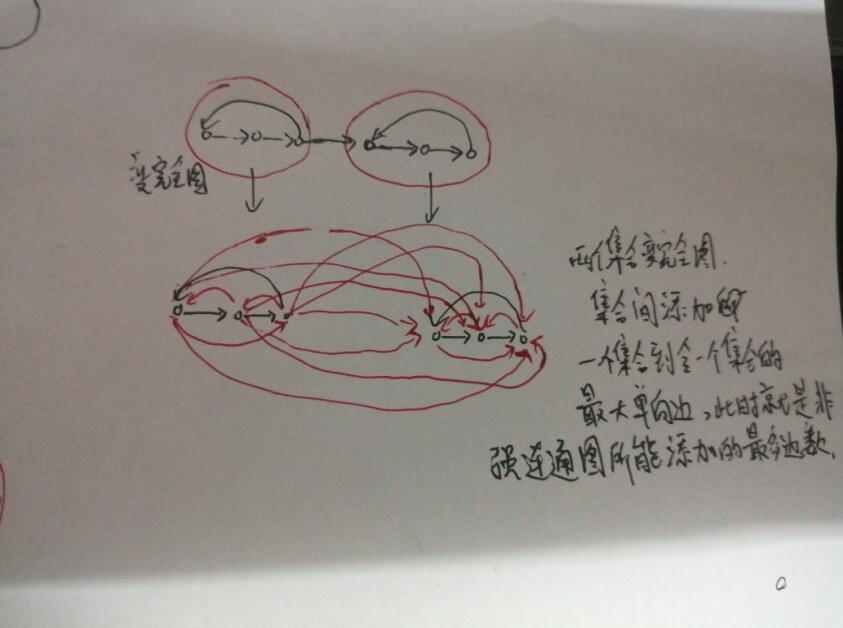 变完全图
两个集合变完全图.
集合间添加
一个集合到令一个集合的
最大单向边,此时就是非
强连通图所能添加的最多边数.